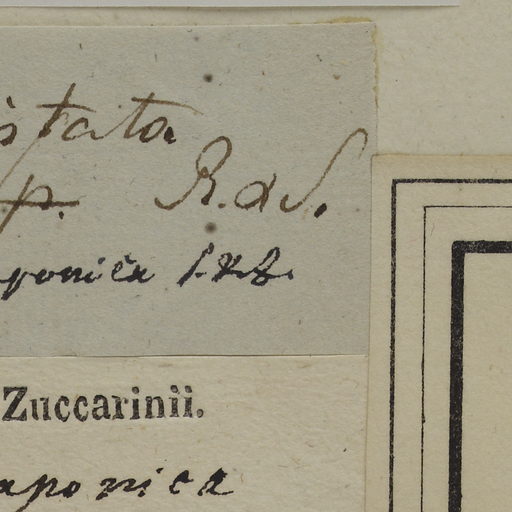 istata
p. R. & S.
aponica S. & Z.
Zuccarinii.
aponica